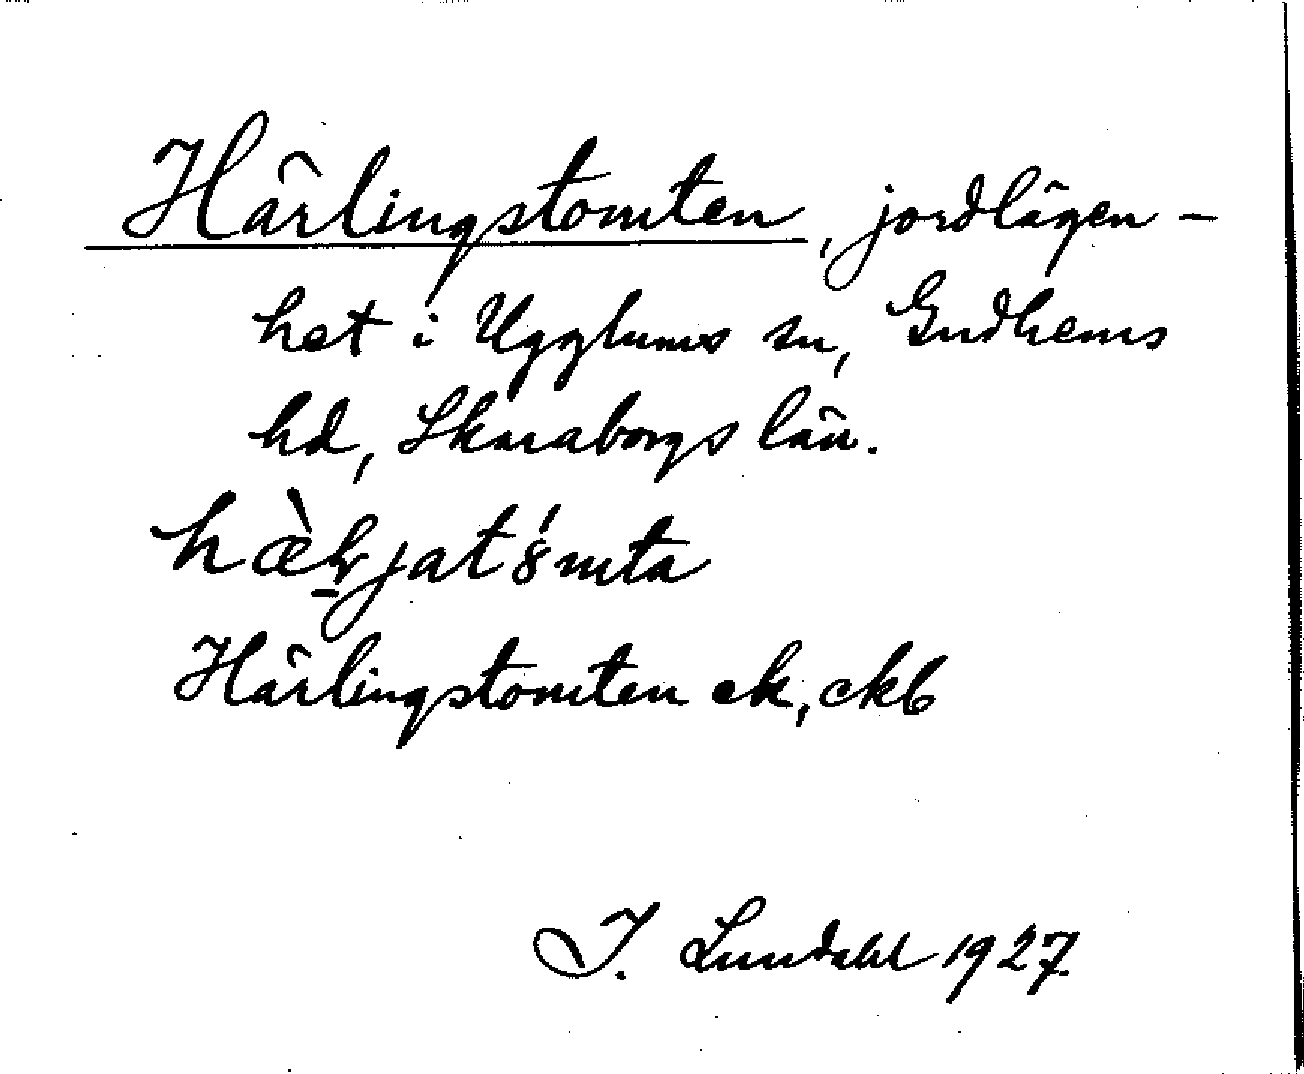 Härlingstomten, jordlägen-
het i Ugglums sn, Gudhems
hd, Skaraborgs län.
Härlingstomten ek, ekb
I. Lundahl 1927.